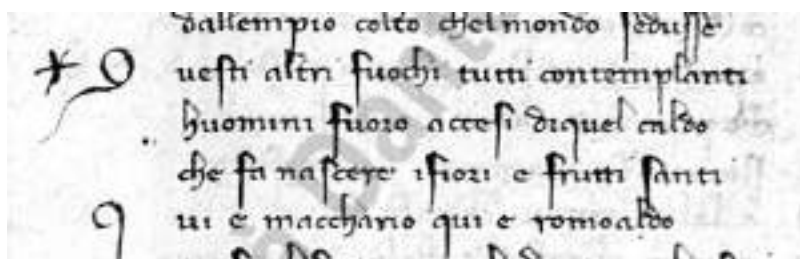 dallempio colto chelmondo sedusse
Questi altri fuochi tutti contemplanti
huomini fuoro accesi diquel caldo
che fa nascere ifiori e frutti santi
Qui e macchario qui e romoaldo